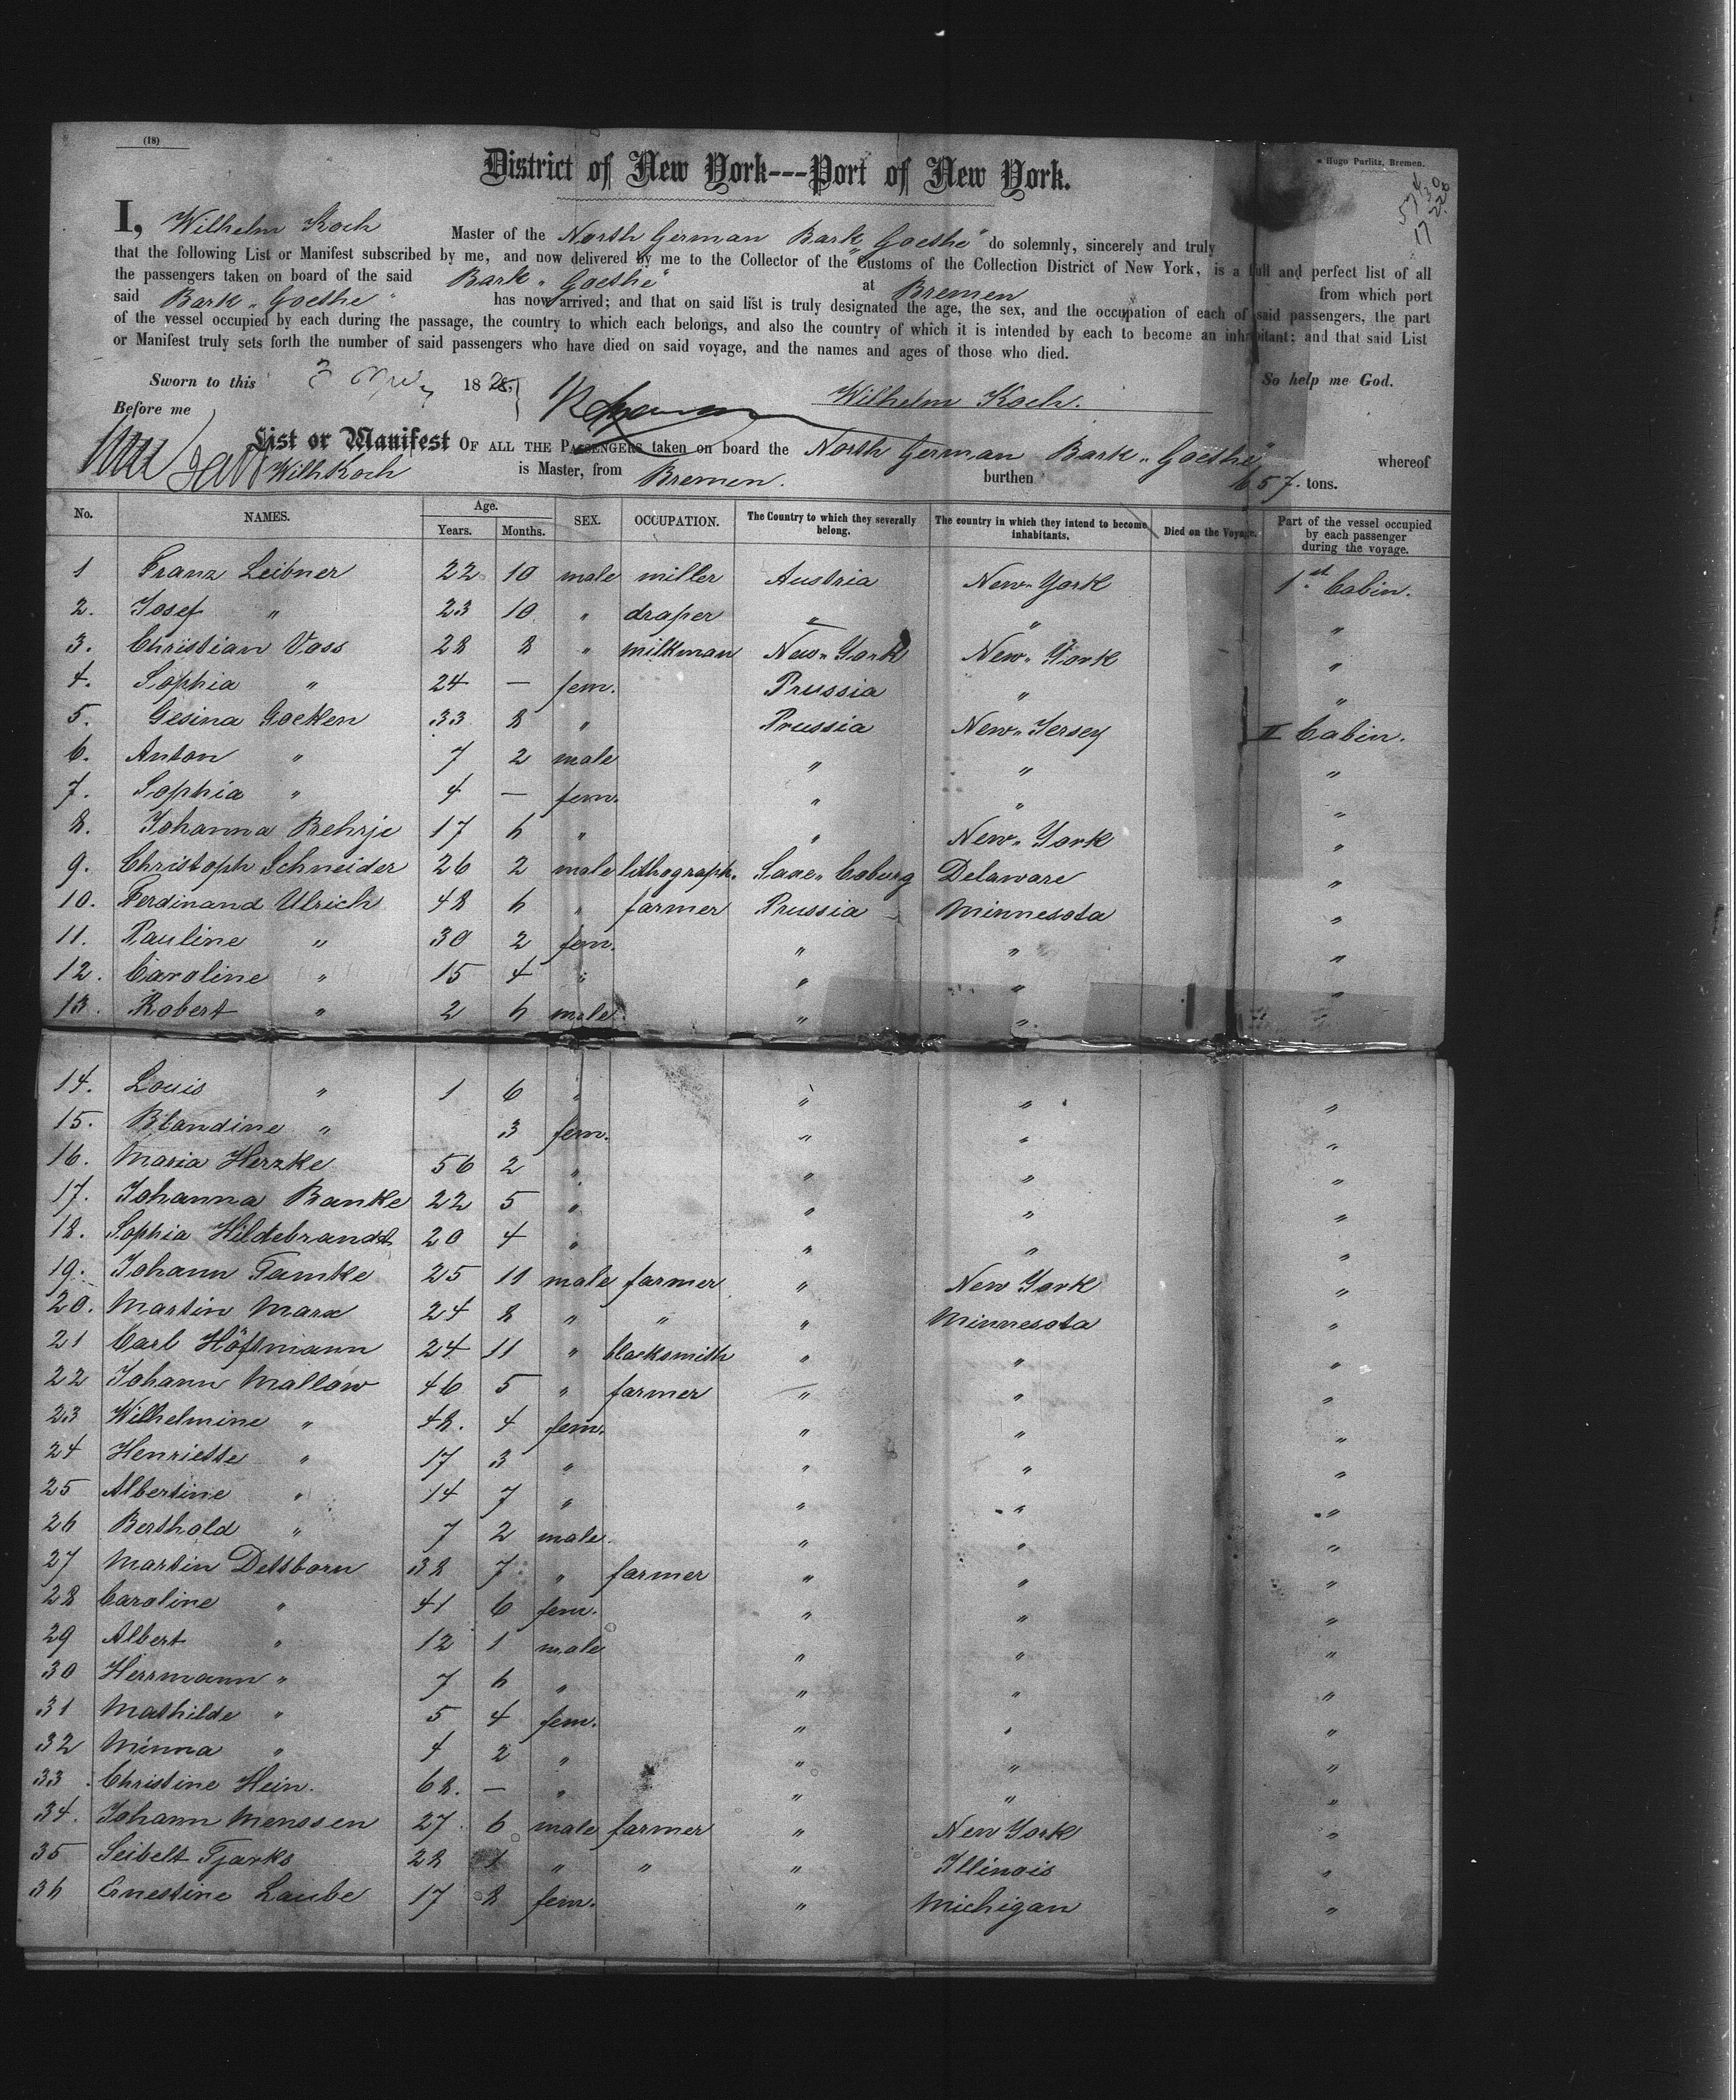 (18)
Hugo Purlitz, Bremen.
District of New York---Port of New York.
I, Wilhelm Koch Master of the North German Bark „Goethe" do solemnly, sincerely and truly
that the following List or Manifest subscribed by me, and now delivered by me to the Collector of the Customs of the Collection District of New York, is a full and perfect list of all
the passengers taken on board of the said Bark „Goethe" at Bremen from which port
said Bark „Goethe" has now arrived; and that on said list is truly designated the age, the sex, and the occupation of each of said passengers, the part
of the vessel occupied by each during the passage, the country to which each belongs, and also the country of which it is intended by each to become an inhabitant; and that said List
or Manifest truly sets forth the number of said passengers who have died on said voyage, and the names and ages of those who died.
Sworn to this 18 So help me God.
Wilhelm Koch.
Before me
List or Manifest OF ALL THE PASSENGERS taken on board the North German Bark „Goethe" whereof
Wilh Koch is Master, from Bremen. burthen 657. tons.
No. NAMES. Age. Years. Months. SEX. OCCUPATION. The Country to which they severally belong. The country in which they intend to become inhabitants. Died on the Voyage. Part of the vessel occupied by each passenger during the voyage.
1 Franz Leibner 22 10 male miller Austria New-York 1st. Cabin.
2. Josef " 23 10 " draper " " "
3. Christian Voss 28 8 " milkman New-York New-York "
4. Sophia " 24 — fem. Prussia " "
5. Gesina Goeken 33 8 " Prussia New-Jersey II Cabin.
6. Anton " 7 2 male " " "
7. Sophia " 4 — fem. " " "
8. Johanna Behrje 17 6 " " New-York "
9. Christoph Schneider 26 2 male lithograph. Saxe-Coburg Delaware "
10. Ferdinand Ulrich 48 6 " farmer Prussia Minnesota "
11. Pauline " 30 2 fem. " " "
12. Caroline " 15 4 " " " "
13. Robert " 2 6 male " " "
14. Louis " 1 6 " " " "
15. Blandine " 3 fem. " " "
16. Maria Herzke 56 2 " " " "
17. Johanna Banke 22 5 " " " "
18. Sophia Hildebrandt 20 4 " " " "
19. Johann Tamke 25 11 male farmer " New York "
20. Martin Marx 24 8 " " " Minnesota "
21 Carl Höftmann 24 11 " blacksmith " " "
22 Johann Mallow 46 5 " farmer " " "
23 Wilhelmine " 48. 4 fem. " " "
24 Henriette " 17 3 " " " "
25 Albertine " 14 7 " " " "
26 Berthold " 7 2 male " " "
27 Martin Dettborn 38 7 " farmer " " "
28 Caroline " 41 6 fem. " " "
29 Albert " 12 1 male " " "
30 Herrmann " 7 6 " " " "
31 Mathilde " 5 4 fem. " " "
32 Minna " 4 2 " " " "
33 Christine Hein. 68. — " " " "
34. Johann Menssen 27 6 male farmer " New York "
35 Seibelt Tjarks 28 1 " " " Illinois "
36 Ernestine Laube 17 8 fem. " Michigan "